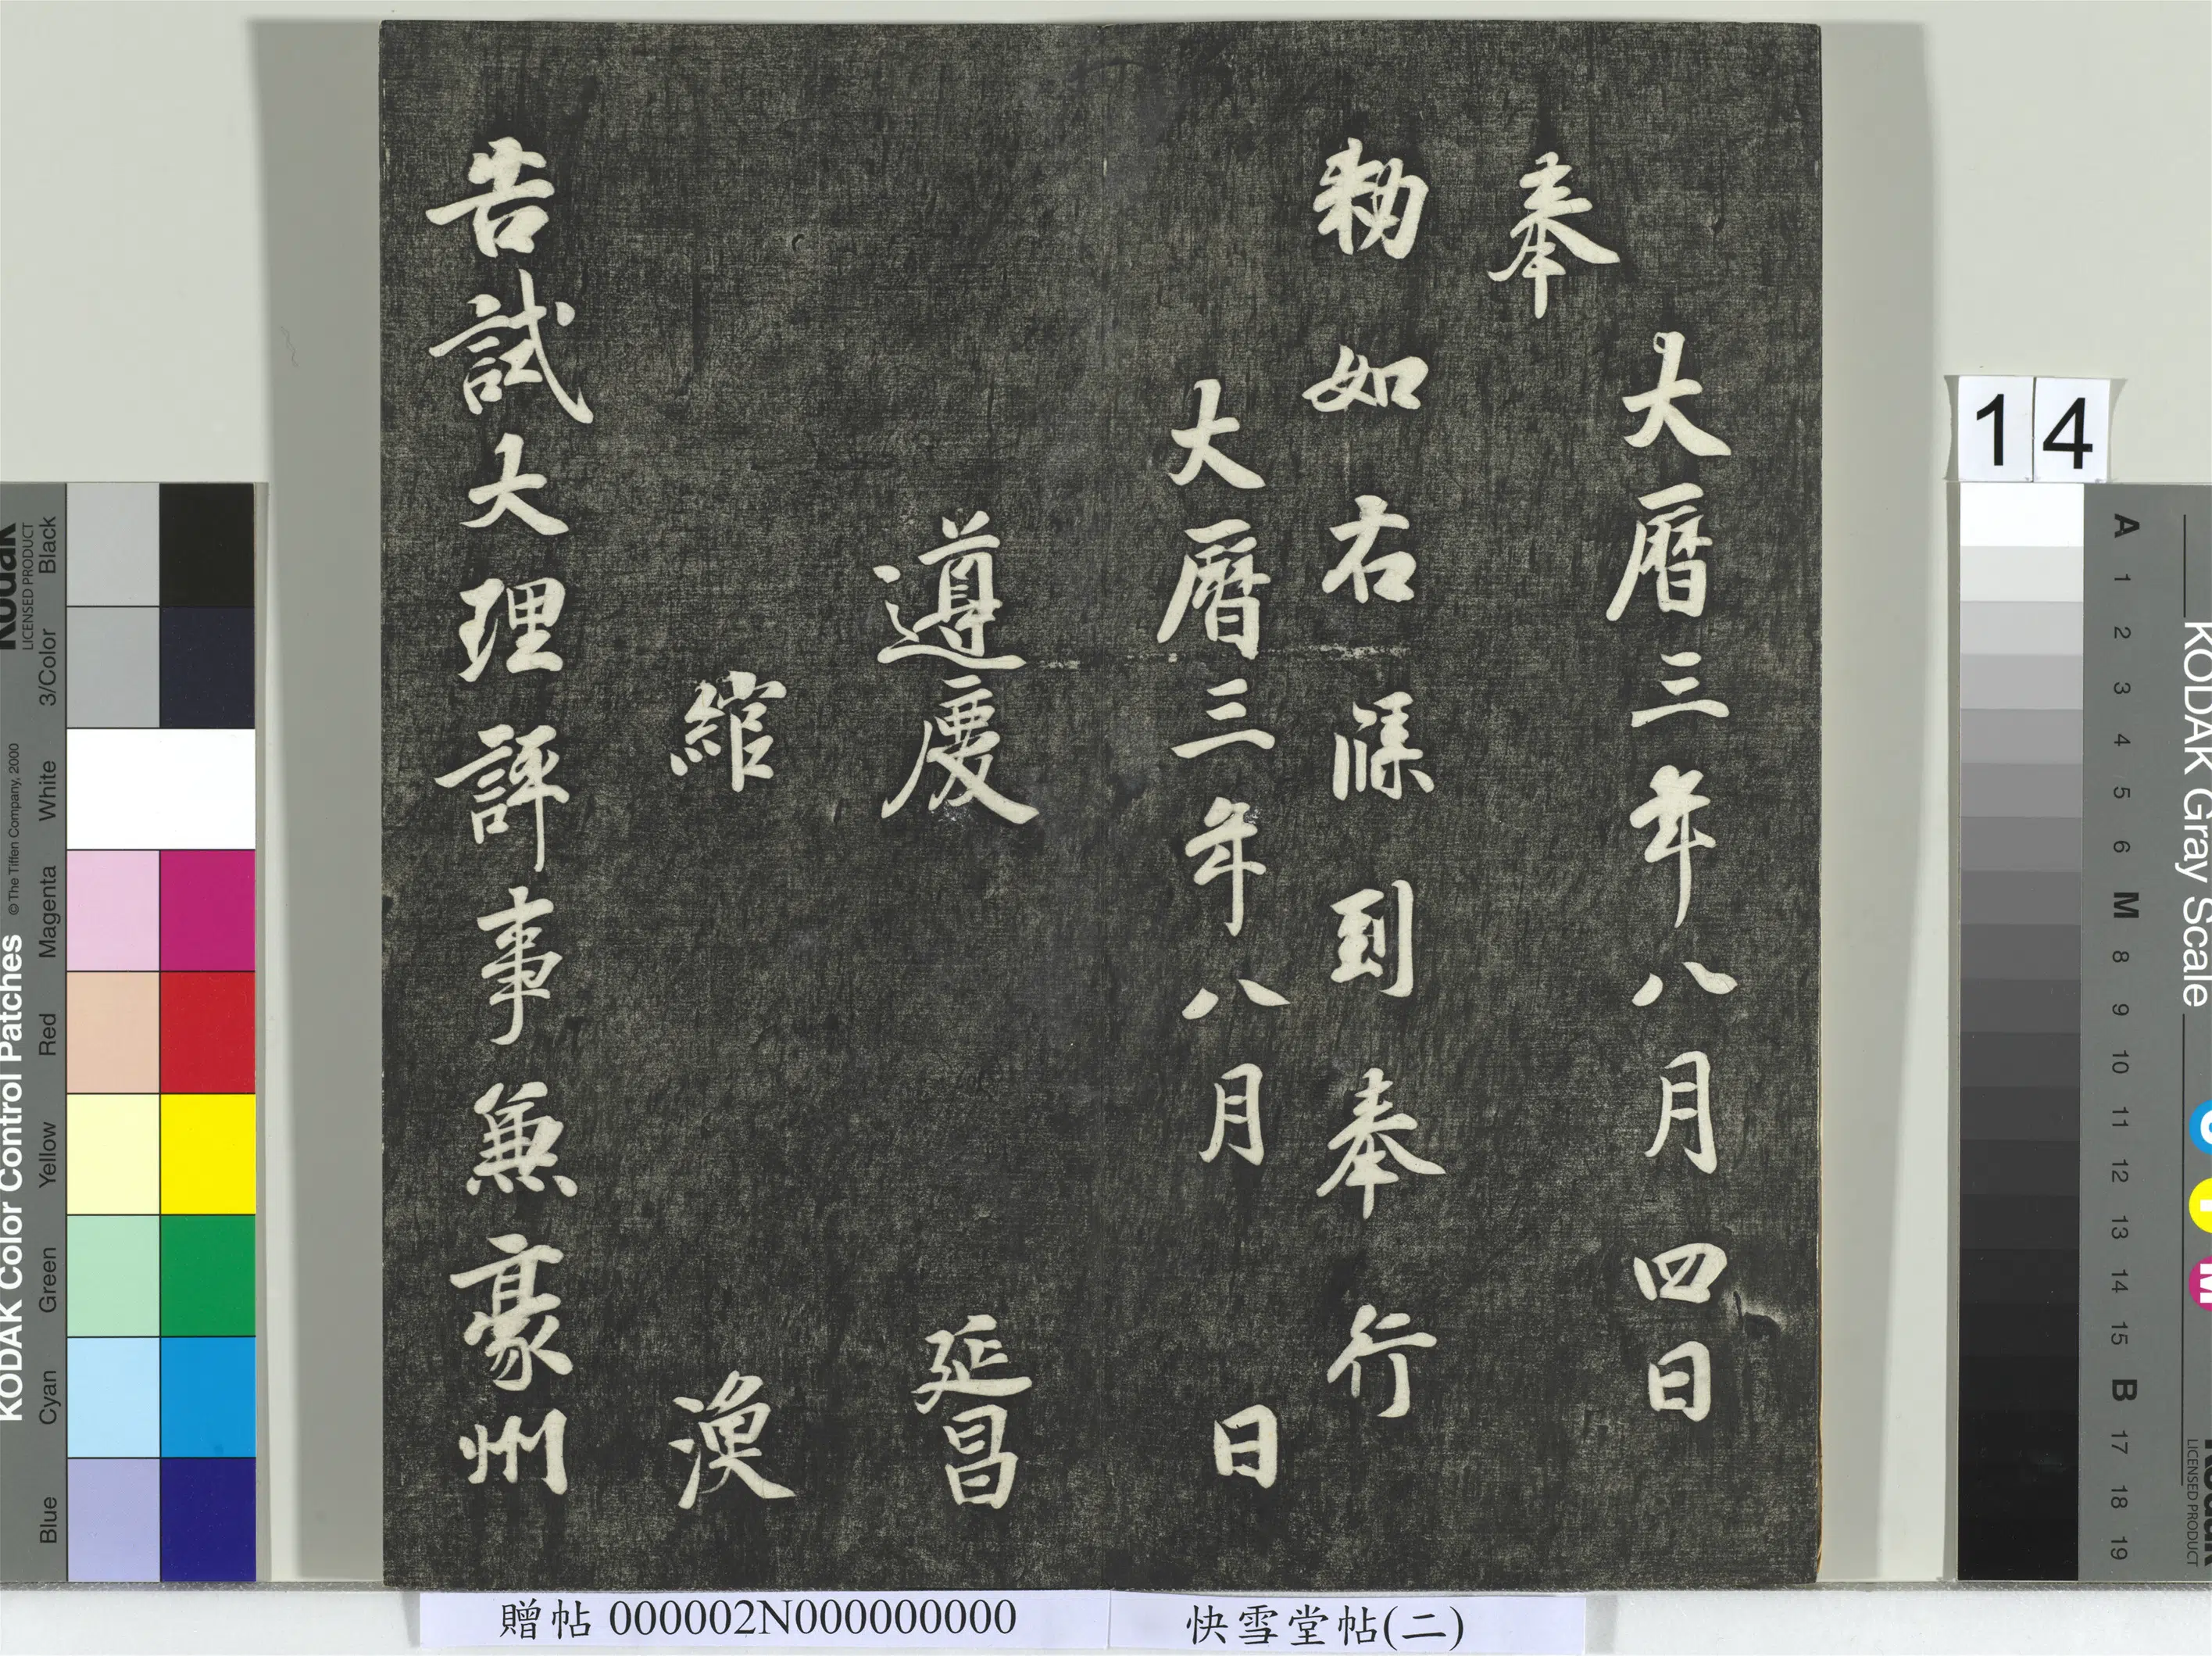 大曆三年八月四日
奉
勑如右牒到奉行
大曆三年八月　日
遵慶　延昌
綰　渙
告試大理評事兼豪州
14
贈帖 000002N000000000
快雪堂帖(二)
KODAK Color Control Patches
© The Tiffen Company, 2000
Kodak
LICENSED PRODUCT
Blue Cyan Green Yellow Red Magenta White 3/Color Black
KODAK Gray Scale
C Y M
Kodak
LICENSED PRODUCT
A 1 2 3 4 5 6 M 8 9 10 11 12 13 14 15 B 17 18 19